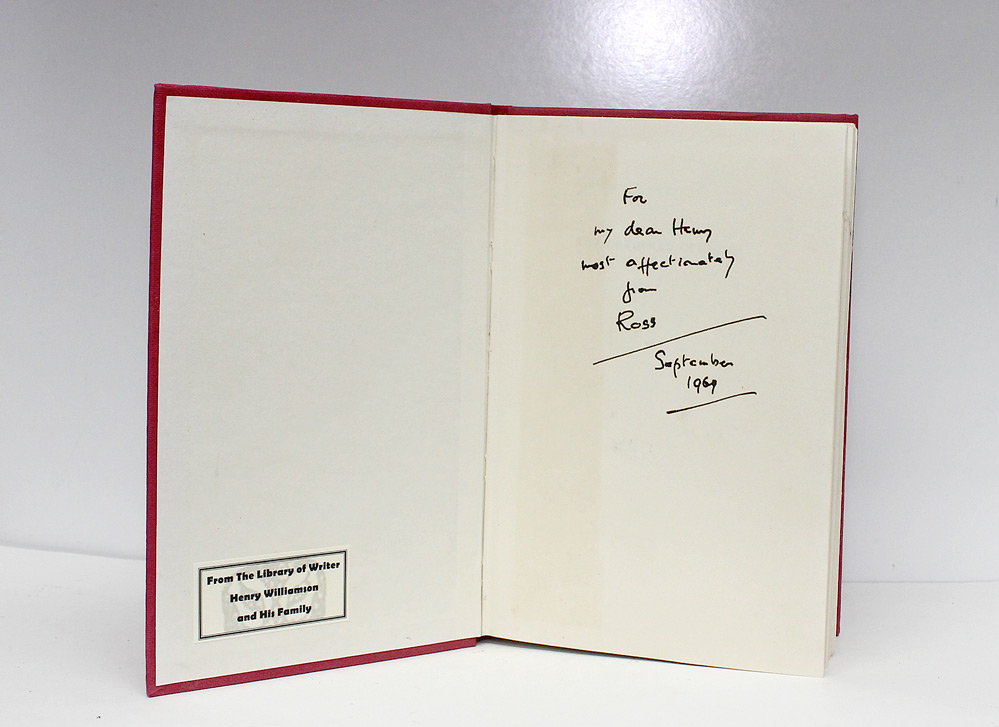 From The Library of Writer
Henry Williamson
and His Family
For
my dear Henry
most affectionately
from
Ross
September
1969